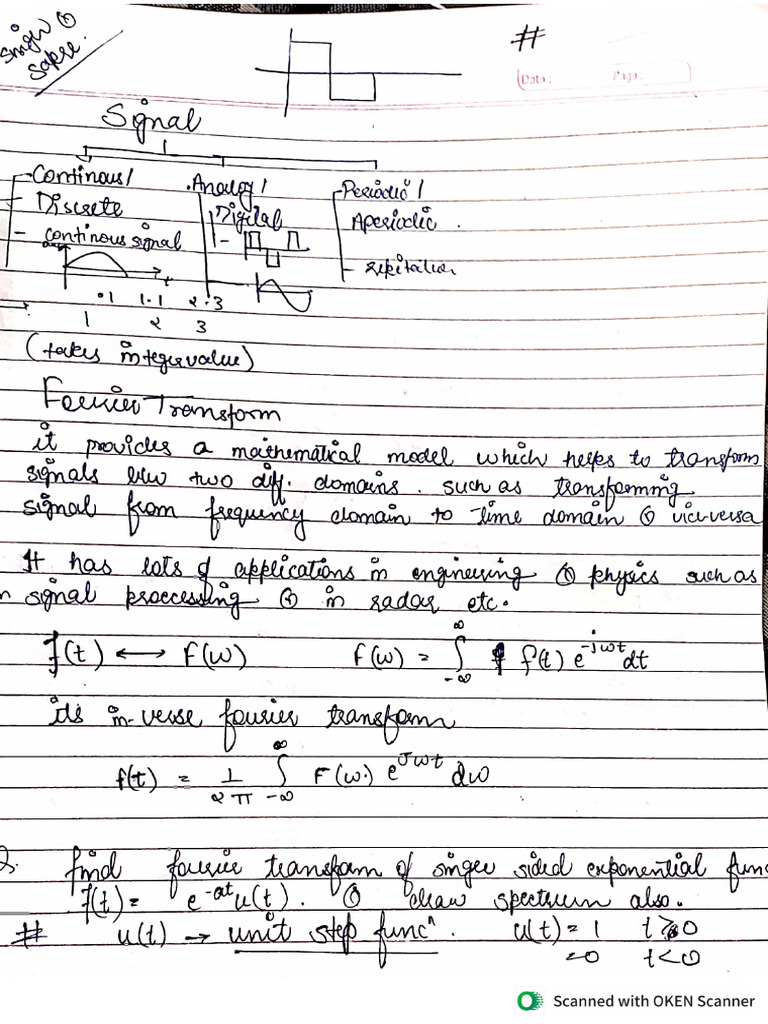 #
Date: Page:
Signal
Continous/ Analog/ Periodic/
Discrete Digital Aperiodic.
- continous signal
t
.1 1.1 2.3
1 2 3
(takes integer value)
Fourier Transform
it provides a mathematical model which helps to transform
signals b/w two diff. domains. such as transforming
signal from frequency domain to time domain & vice-versa
It has lots of applications in engineering & physics such as
in signal proccessing & in radar etc.
f(t) ⟷ F(w) F(w) = ∫_{-∞}^{∞} f(t) e^{-jwt} dt
its in-verse fourier transform
f(t) = 1/2π ∫_{-∞}^{∞} F(w) e^{jwt} dw
Q. find fourier transfom of singee sided exponential func
f(t) = e^{-at} u(t). & draw spectrum also.
# u(t) → unit step funcⁿ. u(t) = 1 t≥0
=0 t<0
Scanned with OKEN Scanner